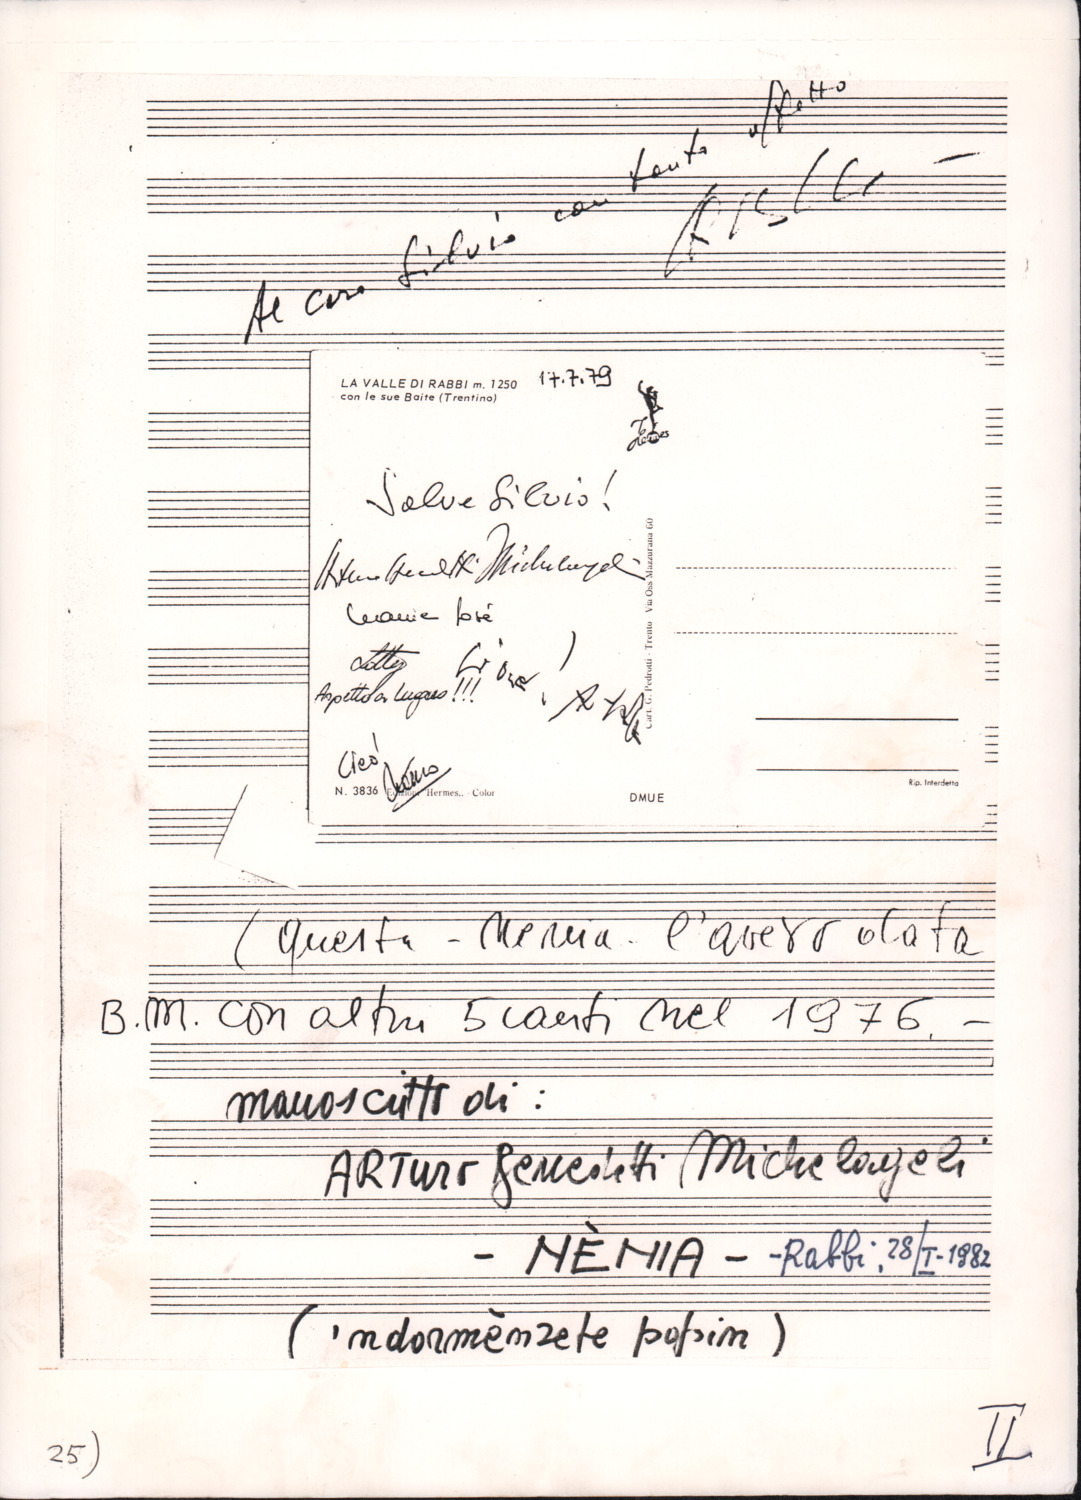 Al caro Silvio con tanto affetto
LA VALLE DI RABBI m. 1250
con le sue Baite (Trentino)
17.7.79
Hermes
Salve Silvio!
Arturo Benedetti Michelangeli
Marie José
Aspetto a Lugano!!!
Ciao!
Cieó
N. 3836 Edizioni Hermes.. - Color
DMUE
Cart. G. Pedrotti - Trento - Via Oss Mazzurana 60
Rip. Interdetta
(Questa - Nenia - l'avevo data
B.M. con altri 5 canti nel 1976. -
manoscritto di:
ARTURO Benedetti Michelangeli
- NÈNIA - - Rabbi, 28/I-1982
('ndormènzete popin)
25)
II